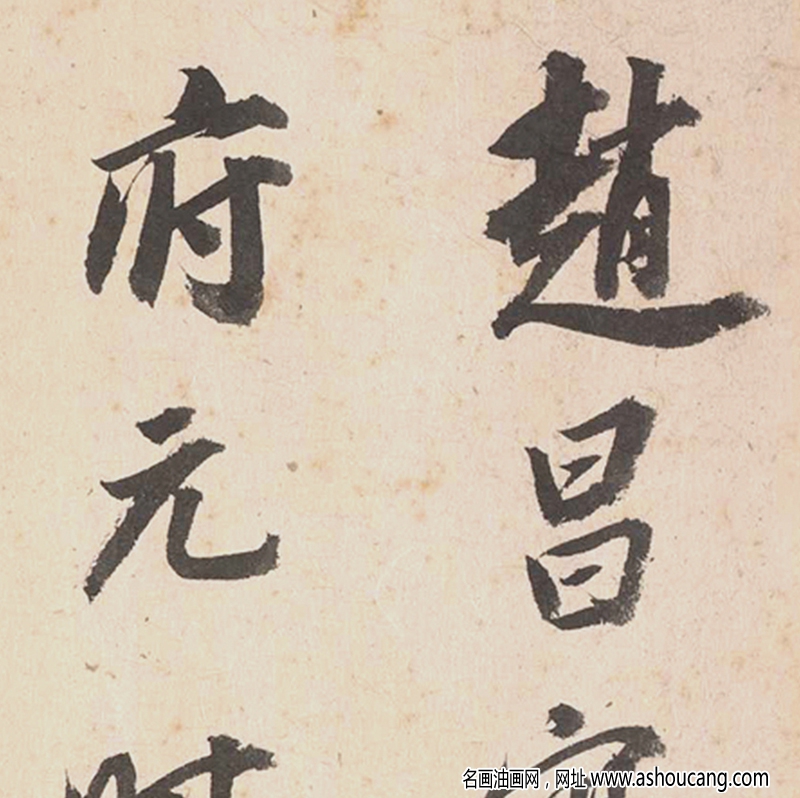 趙昌
府元時
名画油画网，网址 www.ashoucang.com